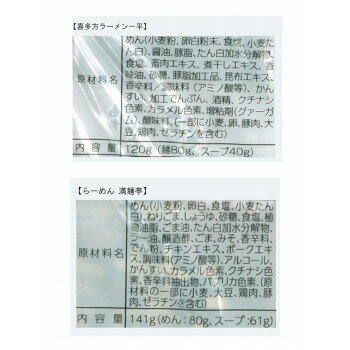 【喜多方ラーメン一平】
原材料名
めん(小麦粉、卵白粉末、食塩、小麦た
ん白)、醤油、豚脂、たん白加水分解物、
食塩、畜肉エキス、煮干しエキス、香
味油、砂糖、豚脂加工品、昆布エキス、
香辛料／調味料(アミノ酸等)、かん
すい、加工でんぷん、酒精、クチナシ
色素、カラメル色素、増粘剤(グァーガ
ム)、酸味料、(一部に小麦、卵、豚肉、大
豆、鶏肉、ゼラチンを含む)
内容量 120g (麺80g、スープ40g)
【らーめん 満麺亭】
原材料名
めん(小麦粉、卵白、食塩、小麦たん
白)、ねりごま、しょうゆ、砂糖、食塩、植
物油脂、ごま油、たん白加水分解物、
ラー油、醸造酢、ごま、みそ、香辛料、
でん粉、チキンエキス、ポークエキ
ス、調味料(アミノ酸等)、アルコール、
かんすい、カラメル色素、クチナシ色
素、香辛料抽出物、パプリカ色素、(原
材料の一部に小麦、大豆、鶏肉、豚
肉、ゼラチンを含む)
内容量 141g(めん：80g、スープ：61g)